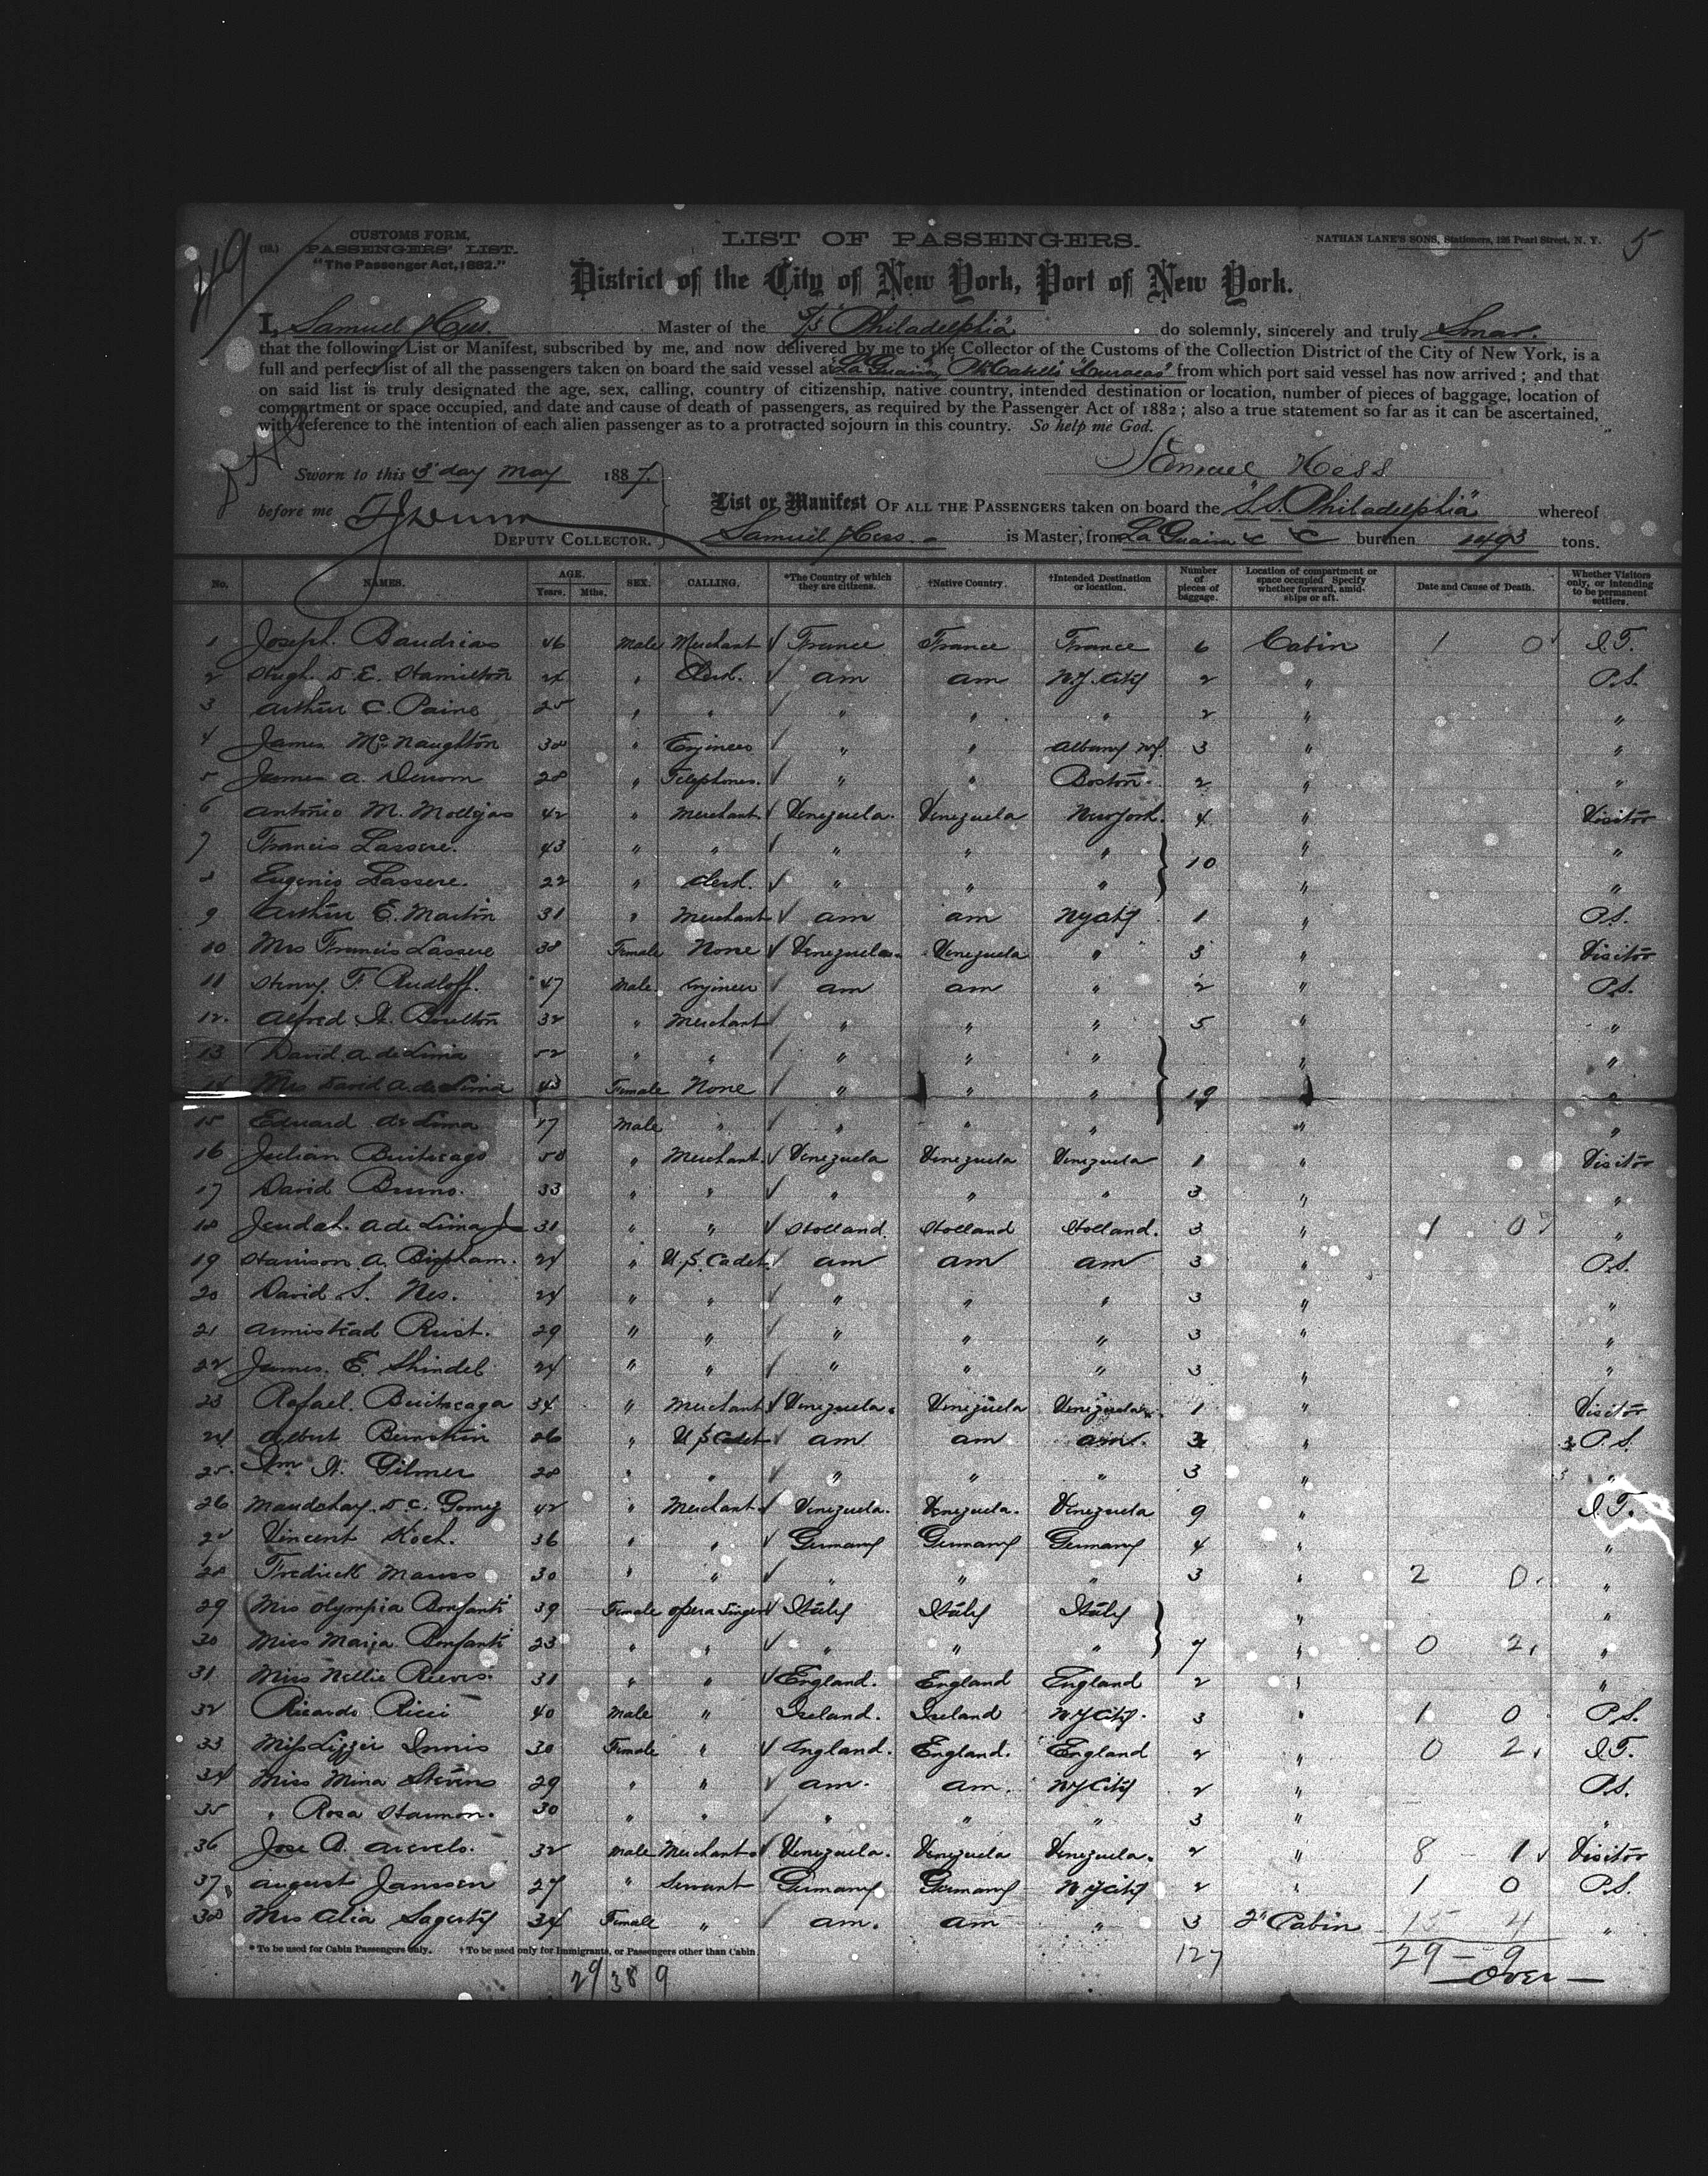 49
(18.) CUSTOMS FORM.
PASSENGERS' LIST.
"The Passenger Act, 1882."
LIST OF PASSENGERS.
NATHAN LANE'S SONS, Stationers, 126 Pearl Street, N. Y.
5
District of the City of New York, Port of New York.
I, Samuel Hess. Master of the S/S "Philadelphia" do solemnly, sincerely and truly Swear.
that the following List or Manifest, subscribed by me, and now delivered by me to the Collector of the Customs of the Collection District of the City of New York, is a
full and perfect list of all the passengers taken on board the said vessel at "La Guaira, Pto Cabello "Curacao" from which port said vessel has now arrived; and that
on said list is truly designated the age, sex, calling, country of citizenship, native country, intended destination or location, number of pieces of baggage, location of
compartment or space occupied, and date and cause of death of passengers, as required by the Passenger Act of 1882; also a true statement so far as it can be ascertained,
with reference to the intention of each alien passenger as to a protracted sojourn in this country. So help me God.
Samuel Hess
Sworn to this 3 day May 1887.
before me
DEPUTY COLLECTOR.
List or Manifest OF ALL THE PASSENGERS taken on board the "S.S. Philadelphia" whereof
Samuel Hess. is Master, from La Guaira & C burthen 1493 tons.
No. NAMES. AGE. Years. Mths. SEX. CALLING. *The Country of which they are citizens. †Native Country. †Intended Destination or location. Number of pieces of baggage. Location of compartment or space occupied Specify whether forward, amidships or aft. Date and Cause of Death. Whether Visitors only, or intending to be permanent settlers.
1 Joseph. Baudrias 46 Male Merchant France France France 6 Cabin 1 0 I.T.
2 Hugh. D. E. Hamilton 24 " Clerk. am am N.Y. City 2 " P.S.
3 Arthur C. Paine 25 " " " " " 2 " "
4 James McNaughton 38 " Engineer " " Albany NY. 3 " "
5 James A. 28 " Telephones. " " Boston. 2 " "
6 Antonio M. 42 " Merchant Venezuela. Venezuela New York. 4 " Visitor
7 Francis Lassere. 43 " " " " " 10 " "
8 Eugenio Lassere. 22 " Clerk. " " " " "
9 Arthur E. Martin 31 " Merchant am am NY City 1 " P.S.
10 Mrs Francis Lassere 38 Female None Venezuela. Venezuela " 3 " Visitor
11 Henry. F. Rudloff. 47 Male. Engineer am am " 2 " P.S.
12. Alfred H. Boulton 32 " Merchant " " " 5 " "
13 David A. de Lima 52 " " " " " " "
14 Mrs David A. de Lima 43 Female None " " " 19 "
15 Eduard de Lima 17 Male " " " " " "
16 Julian Buitrago 50 " Merchant. Venezuela Venezuela Venezuela 1 " Visitor
17 David Bruno. 33 " " " " " 3 " "
18 Jeudah. A de Lima Jr 31 " " Holland. Holland Holland. 3 " 1 0 "
19 Harrison A. Bispham. 24 " U.S. Cadet. am am am 3 " P.S.
20 David S. Nes. 24 " " " " " 3 " "
21 Armistead Rust. 29 " " " " " 3 " "
22 James. E. Shindel 24 " " " " " 3 " "
23 Rafael. Buitrago 34 " Merchant Venezuela. Venezuela Venezuela. 1 " Visitor
24 Albert Bernstein 26 " U.S Cadet am am am. 3 " P.S.
25. Wm H. Gilmer 28 " " " " " 3 " "
26 Maudchay. D. C. Gomez 42 " Merchant. Venezuela. Venezuela. Venezuela 9 " I.T.
27 Vincent Koch. 36 " " Germany Germany Germany 4 " "
28 Fredrick Mauss 30 " " " " " 3 " 2 0. "
29 Mrs Olympia Bonfanti 39 Female opera Singer Italy Italy Italy " "
30 Miss Maria Bonfanti 23 " " " " " 7 " 0 2. "
31 Miss Nellie Reeves. 31 " " England. England England 2 " "
32 Ricardo Ricci 40 Male " Ireland. Ireland NY City. 3 " 1 0 P.S.
33 Miss Lizzie Innis 30 Female " England. England. England 2 " 0 2. I.T.
34 Miss Mina Stevens 29 " " am. am. NY City 2 " P.S.
35 " Rosa Harmon. 30 " " " " " 3 " "
36 Jose A. Arevelo. 32 Male Merchant. Venezuela. Venezuela Venezuela. 2 " 8 - 1 Visitor
37 August Janssen 27 " Servant Germany Germany NY City 2 " 1 0 P.S.
38 Mrs Celia Sagerty 34 Female " am. am " 3 2d Cabin 15 4 "
* To be used for Cabin Passengers only. † To be used only for Immigrants, or Passengers other than Cabin
127
29 - 9
29 38 9
—Over—